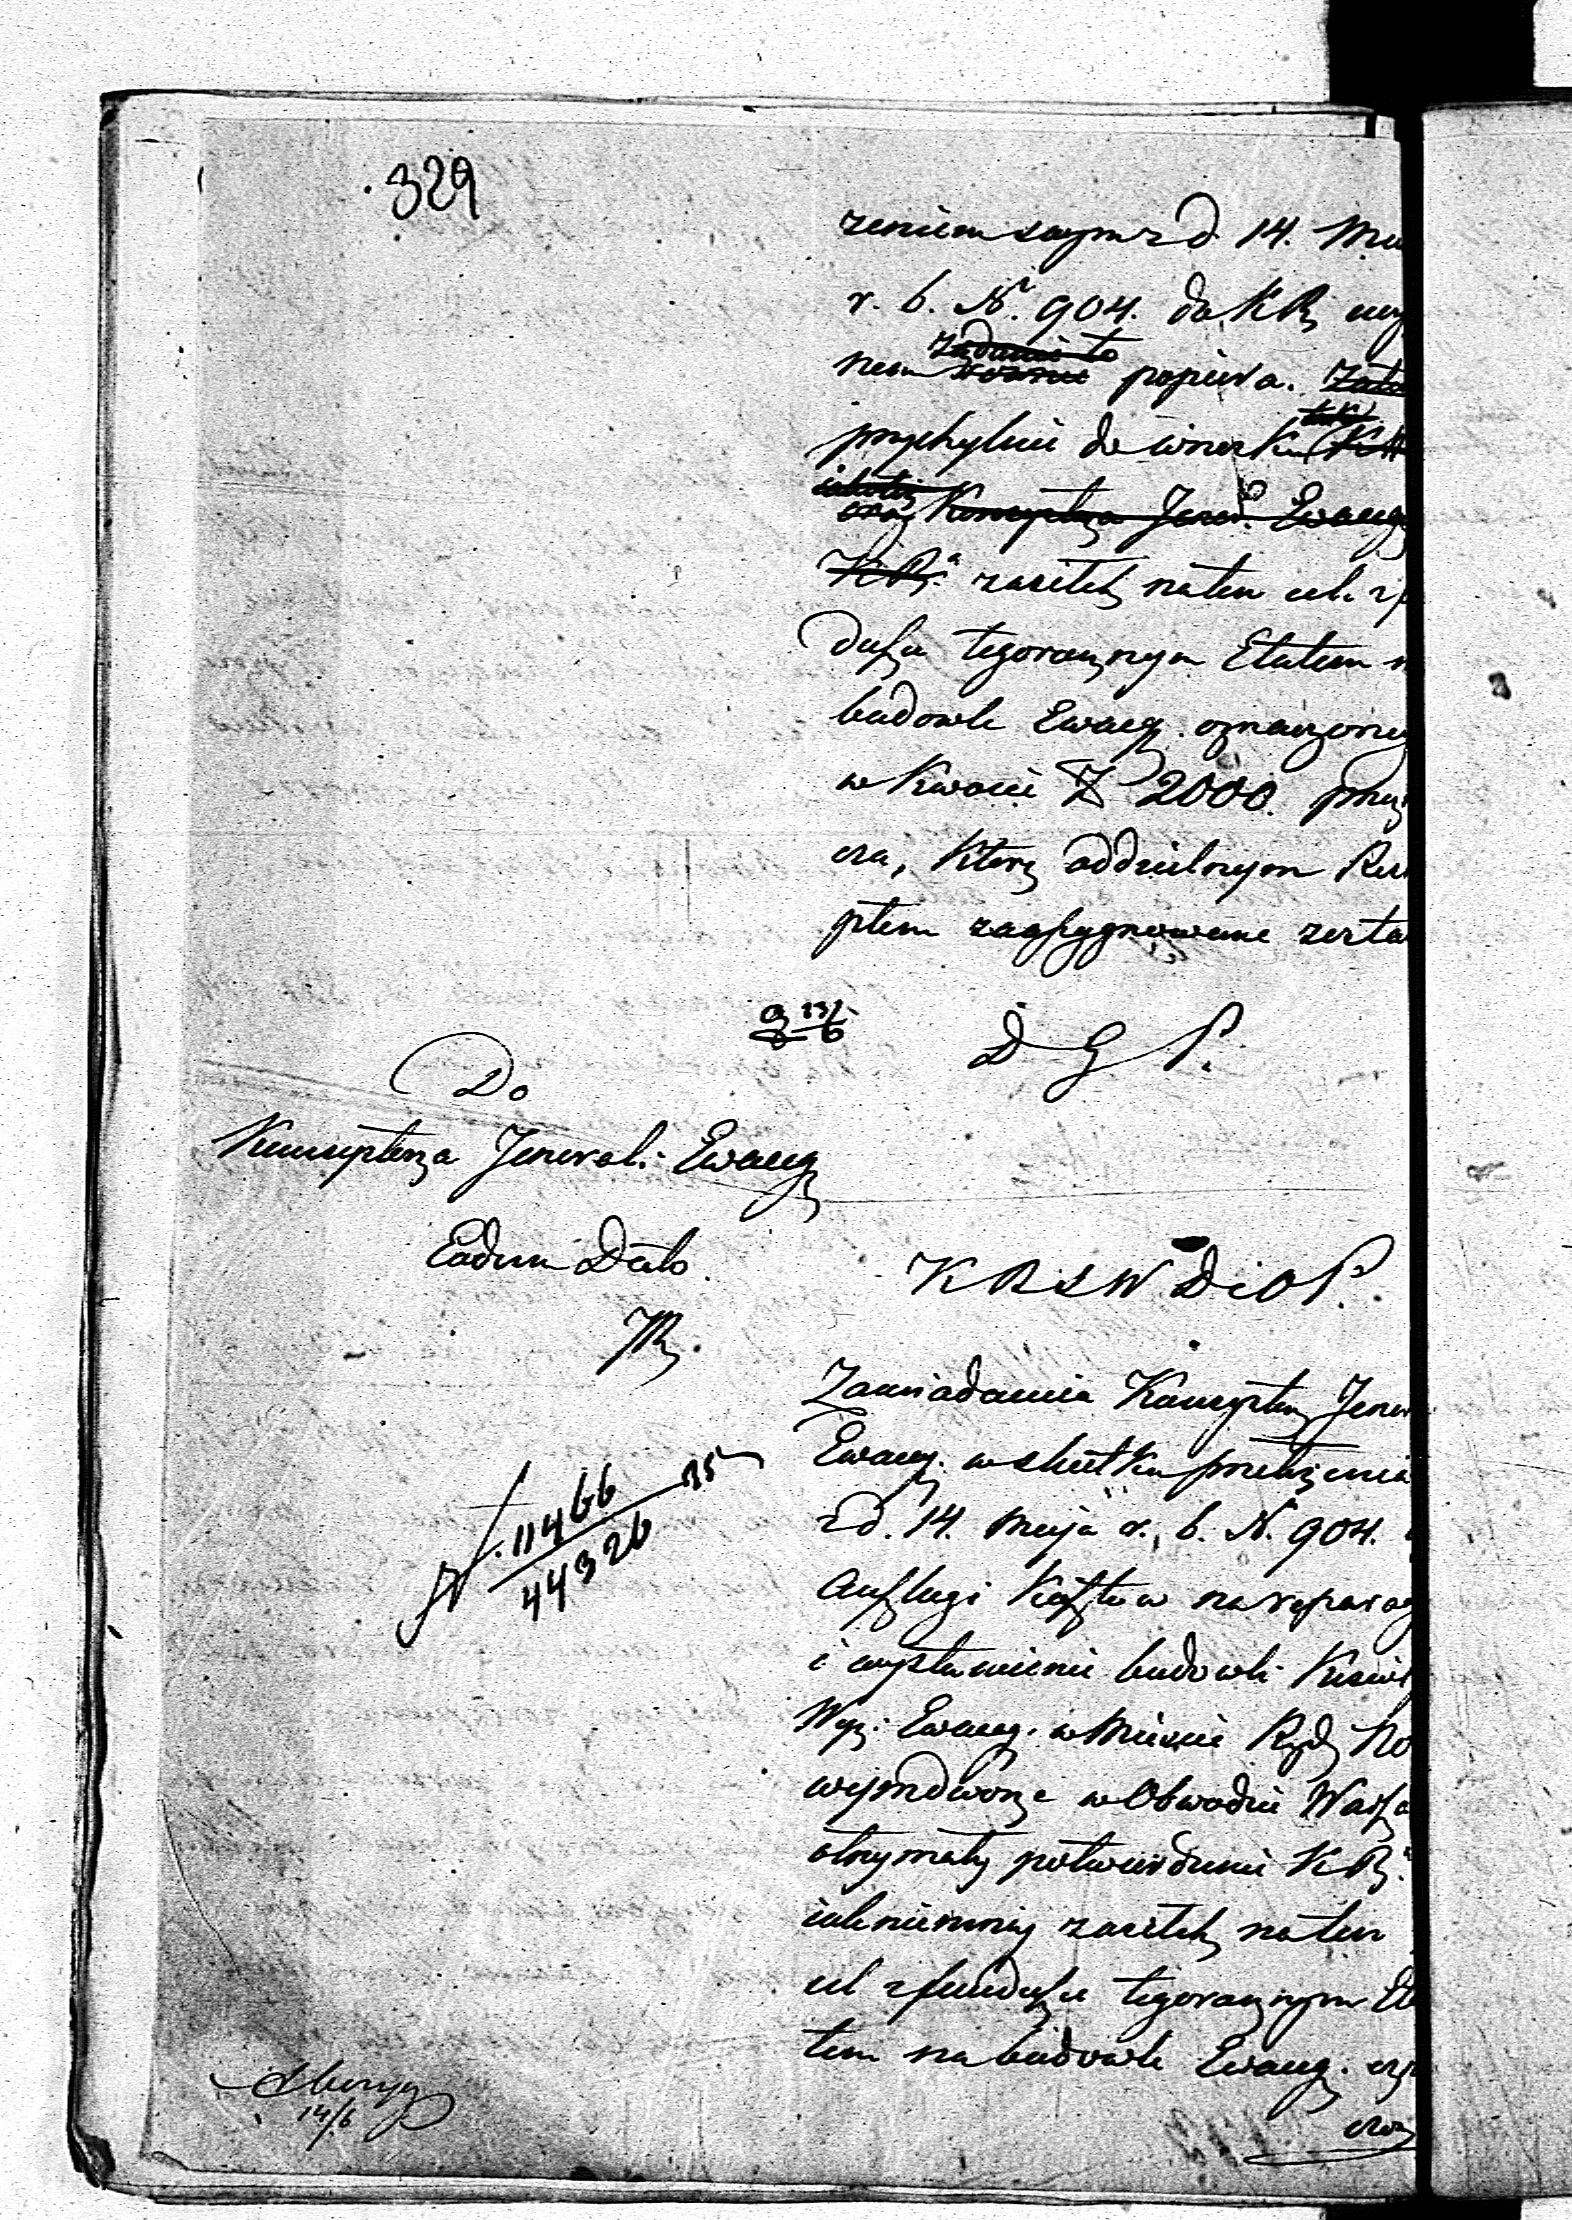 329
zeniem swym z d. 14. Ma
r. b. Nr. 904. do KRz uczy
żądanie to
nem popiera.
przychylnie do wniosku
oraz Konsystorza Jener. Ewang
KRz. zasiłek na ten cel z
duszu tegorocznym Etatem n
budowle Ewang. oznaczony
w kwocie Zł 2000. przy
cza, który oddzielnym Res
ptem zaassygnowane zosta
13/6
D G P.
Do
Konsystorza Jeneral: Ewang
Eadem Dato.
KRSWDiOP.
Zawiadamia Konsystorz Jener
Ewang. w skutku przełożenia
z d. 14. Maja r. b. N. 904.
Anszlagi kosztów na reparacy
i wystawienie budowli Kościel
Wyz. Ewang. w Mieście
N. 11466/44326 35
w Obwodzie Warsza
otrzymały potwierdzenie KRz.
niemniej zasiłek na ten
cel z funduszu tegorocznym Eta
tem na budowle Ewang. ozn
czo
14/6